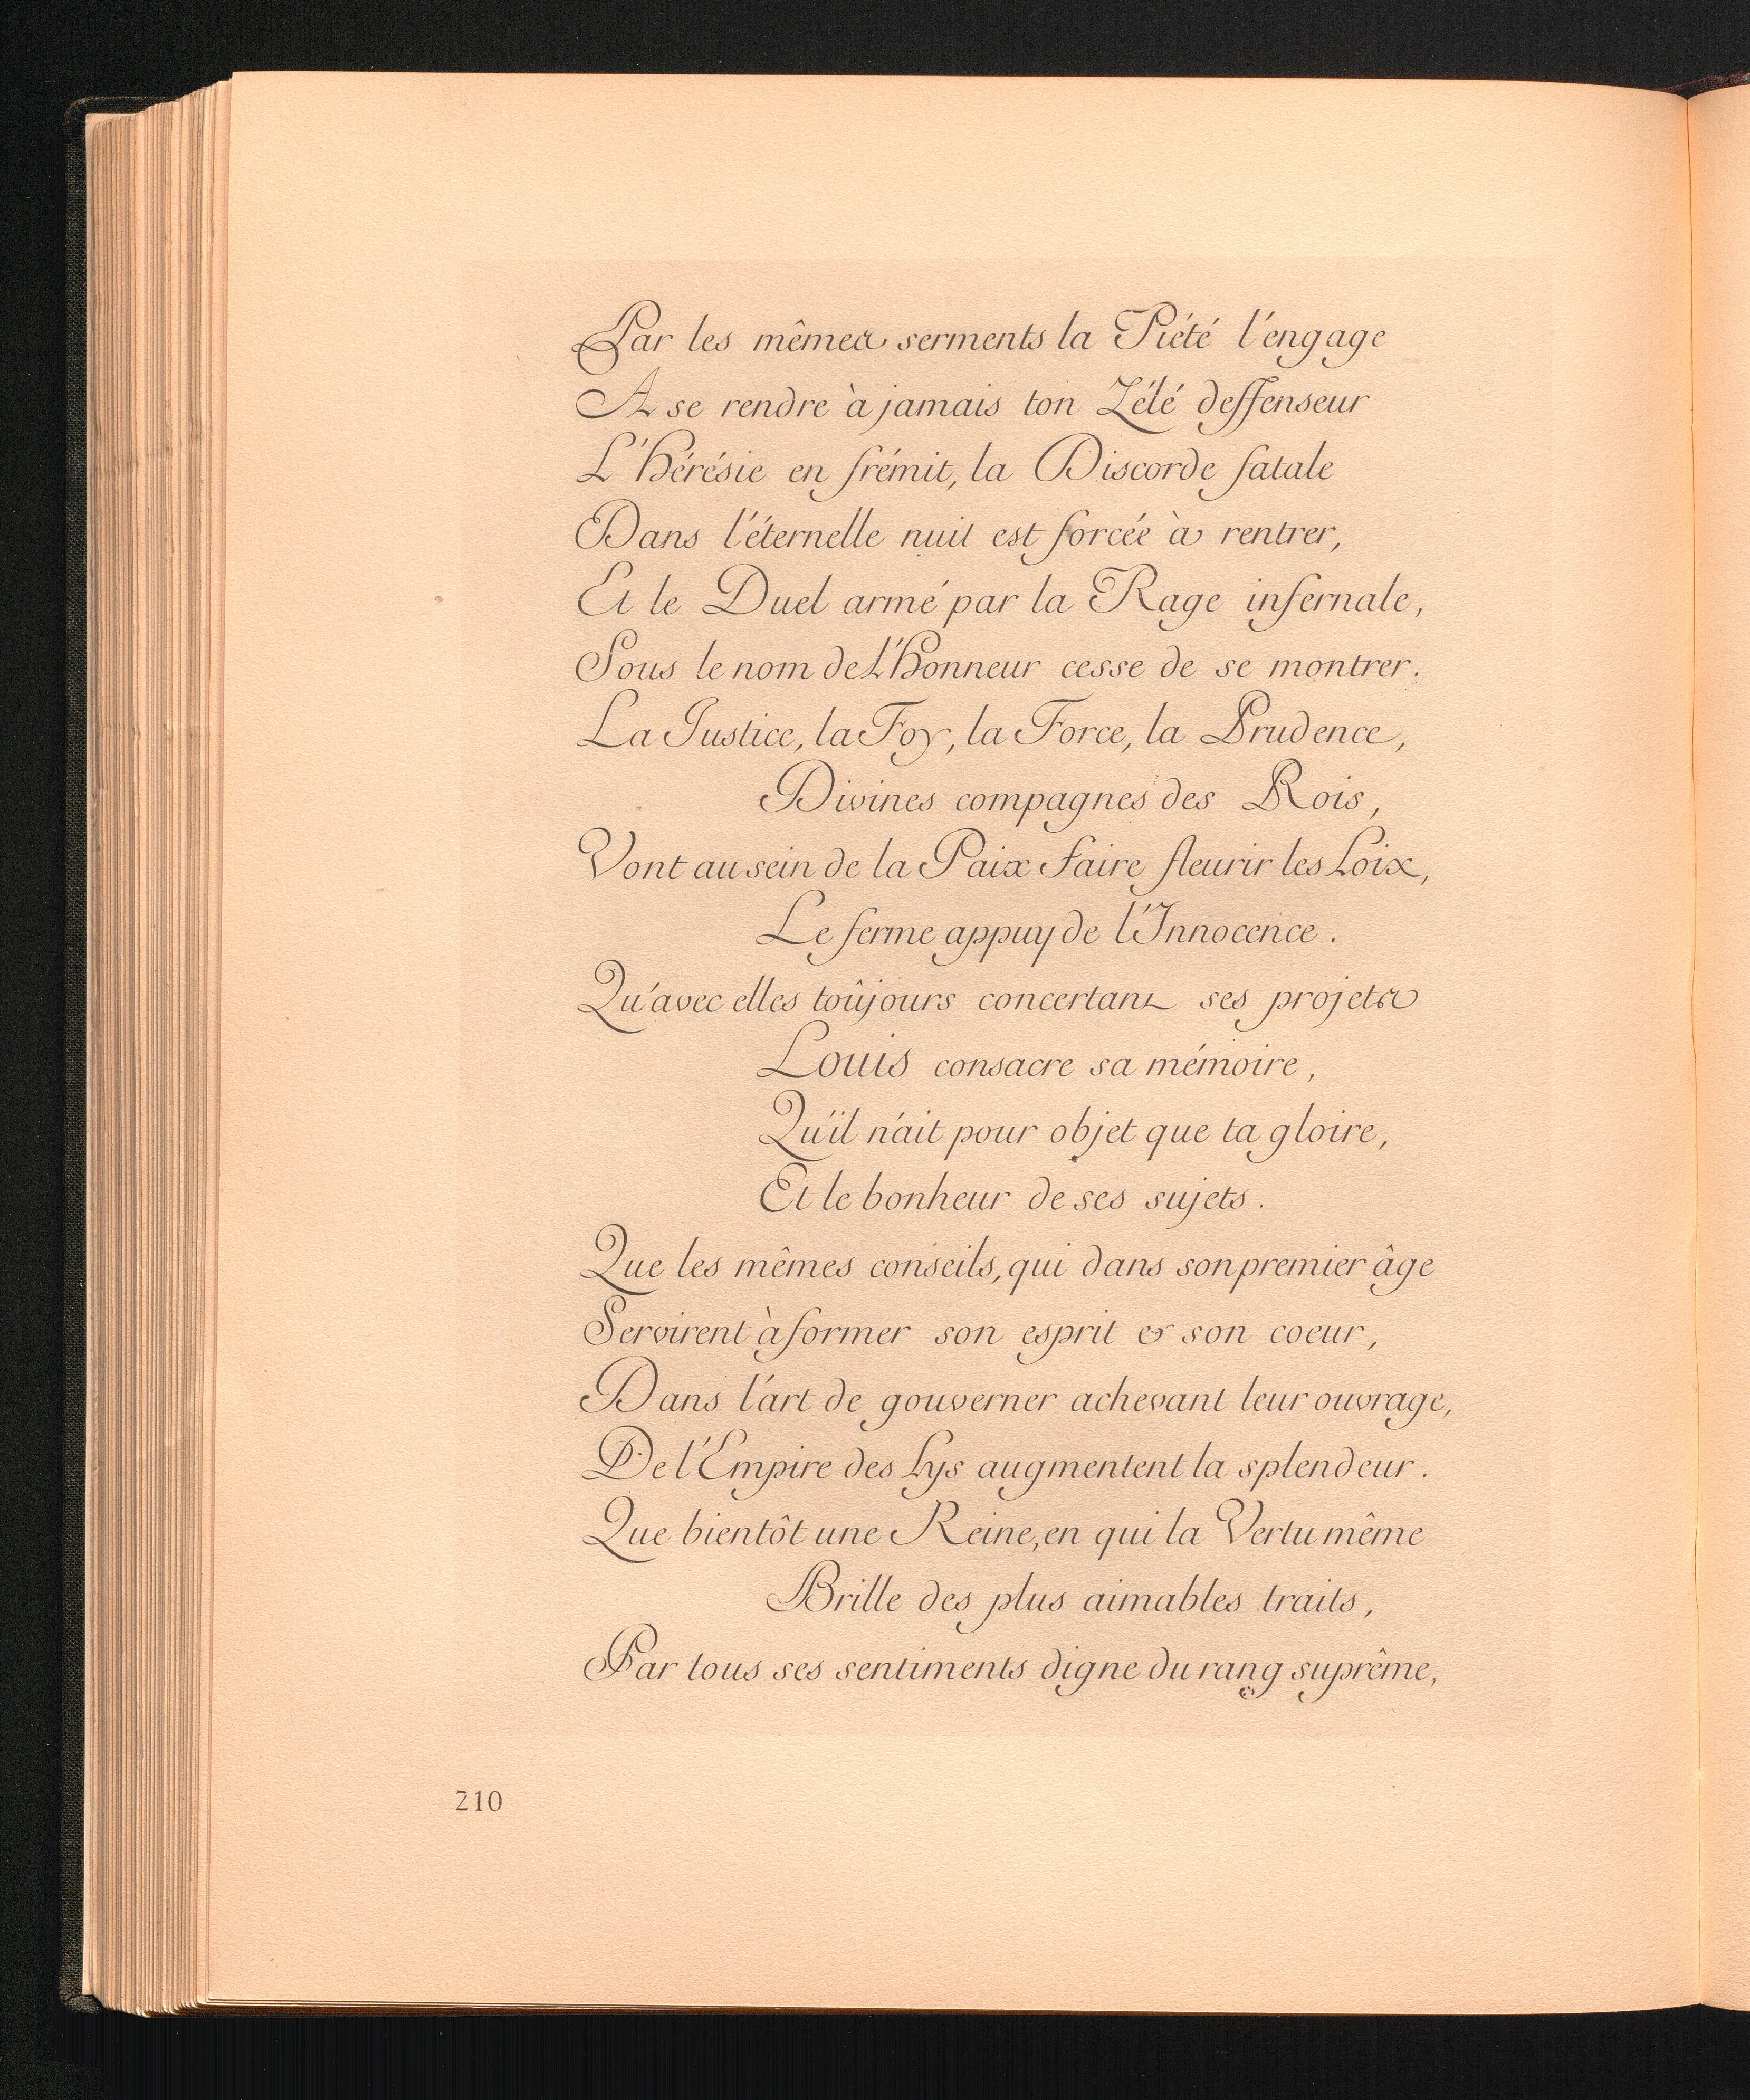 Par les mêmes serments la Piété l'engage
A se rendre à jamais ton Zélé deffenseur
L'Hérésie en frémit, la Discorde fatale
Dans l'éternelle nuit est forcée à rentrer,
Et le Duel armé par la Rage infernale,
Sous le nom de L'Honneur cesse de se montrer.
La Justice, la Foy, la Force, la Prudence,
Divines compagnes des Rois,
Vont au sein de la Paix faire fleurir les Loix,
Le ferme appuy de l'Innocence.
Qu'avec elles toûjours concertant ses projets
Louis consacre sa mémoire,
Qu'il n'ait pour objet que ta gloire,
Et le bonheur de ses sujets.
Que les mêmes conseils, qui dans son premier âge
Servirent à former son esprit & son coeur,
Dans l'art de gouverner achevant leur ouvrage,
De l'Empire des Lys augmentent la splendeur.
Que bientôt une Reine, en qui la Vertu même
Brille des plus aimables traits,
Par tous ses sentiments digne du rang suprême,
210